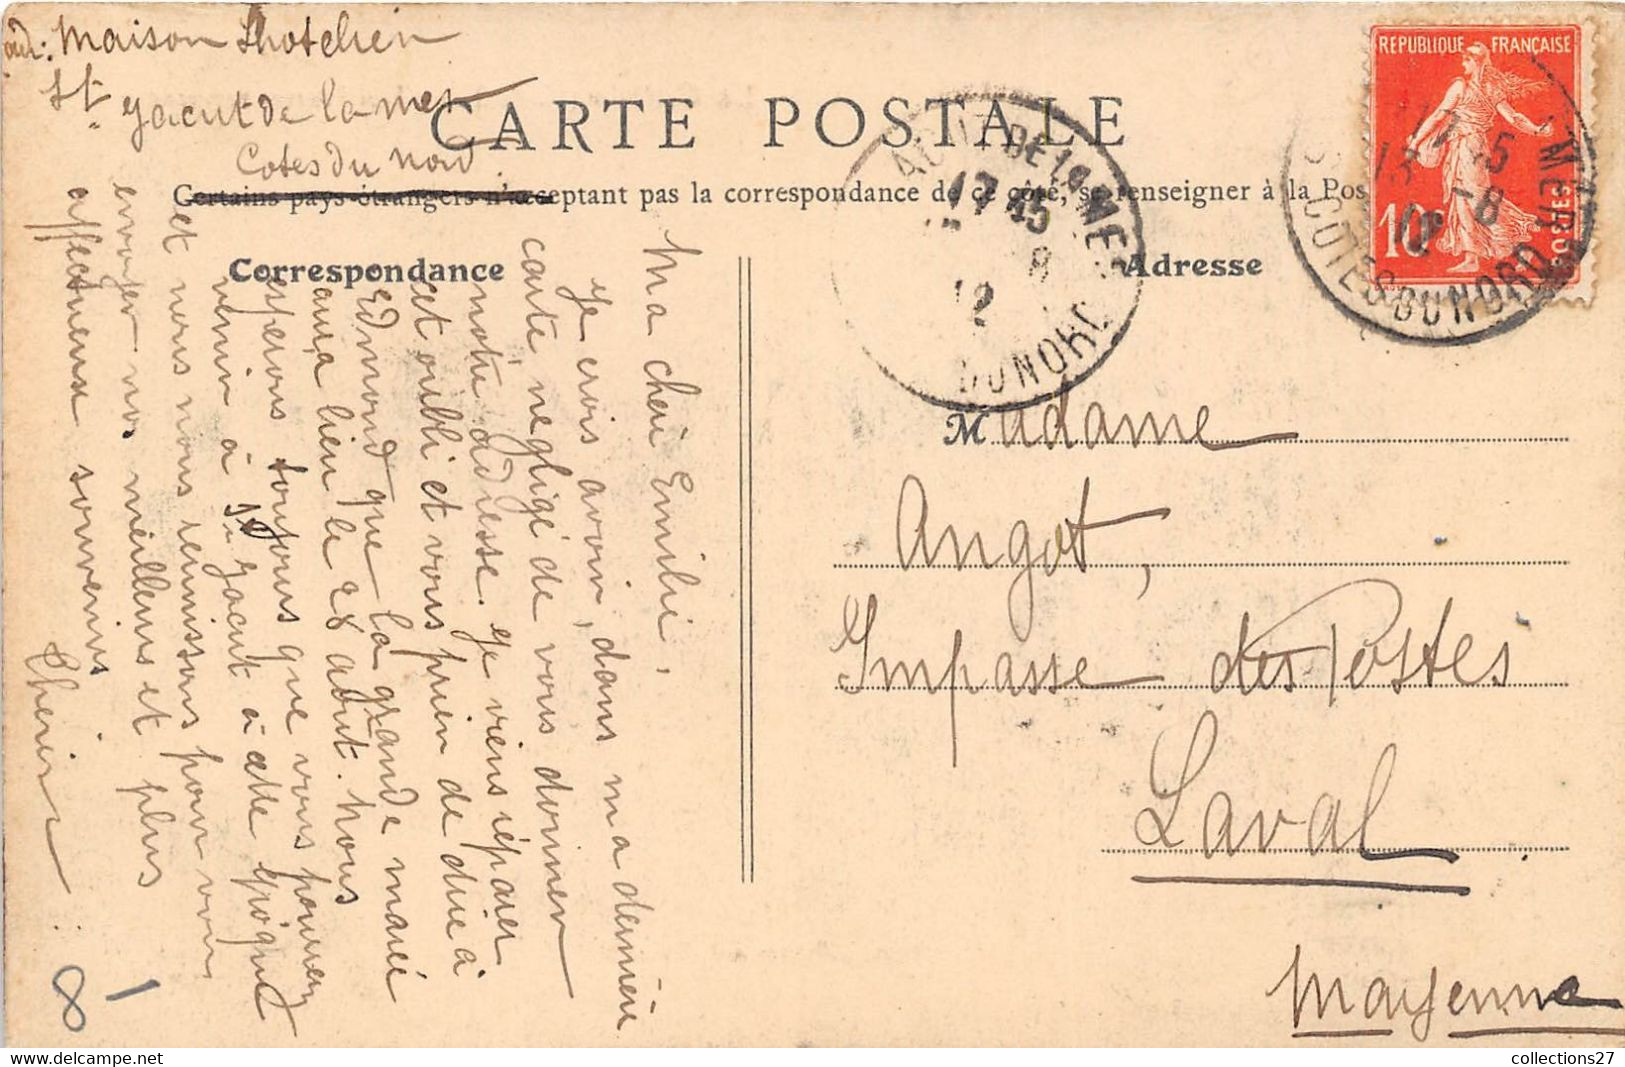 adr: Maison Lhotelien
St Jacut de la mer
CARTE POSTALE
Cotes du Nord
Certains pays étrangers n'acceptant pas la correspondance de ce côté, se renseigner à la Pos
Correspondance
Adresse
REPUBLIQUE FRANÇAISE
10
DE LA MER
17 45
8
12
DU NORD
17 45
13 -8
12
MER
COTES DU NORD
Ma chèr Emilie,
Je crois avoir, dans ma dernière
carte, négligé de vous donner
notre adresse. Je viens réparer
cet oubli et vous prier de dire à
Edmond que la grande marée
aura lieu le 28 août. Nous
espérons toujours que vous pourrez
venir à St Jacut à cette époque
et nous nous réunissons pour vous
envoyer nos meilleurs et plus
affectueux souvenirs
Madame
Angot,
Impasse des Postes
Laval
Mayenne
18
collections27